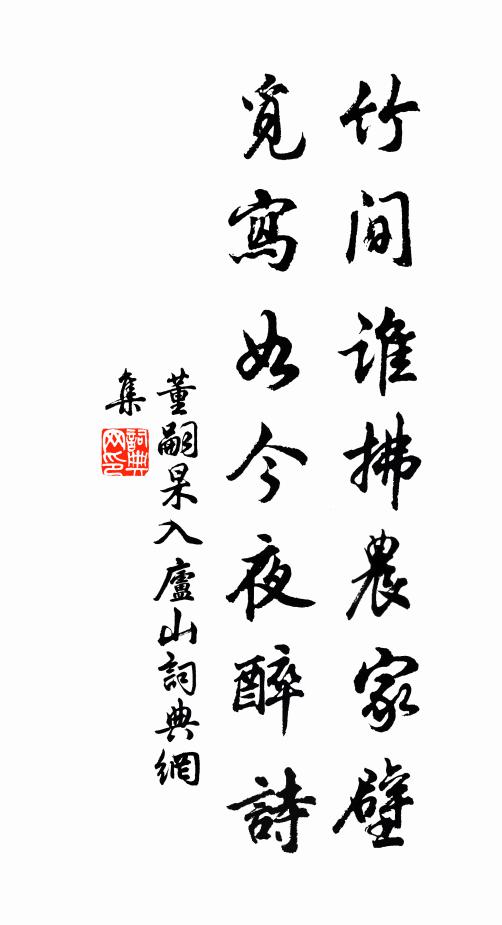 竹间谁拂農家壁
覓寫如今夜醉詩
董嗣杲入廬山詞典網
集
詞典網印